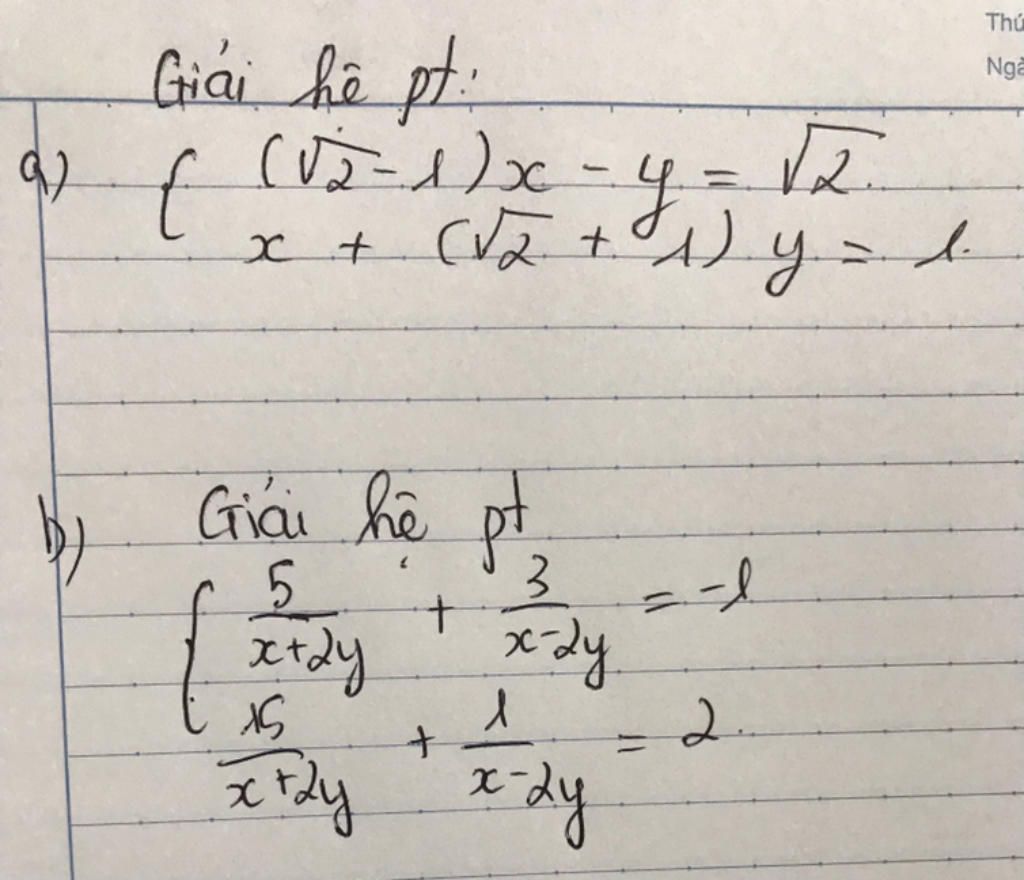 Thứ
Ngà
Giải hệ pt:
a) { (√2 - 1)x - y = √2.
x + (√2 + 1) y = 1.
b) Giải hệ pt
{ 5/(x+2y) + 3/(x-2y) = -1
15/(x+2y) + 1/(x-2y) = 2.